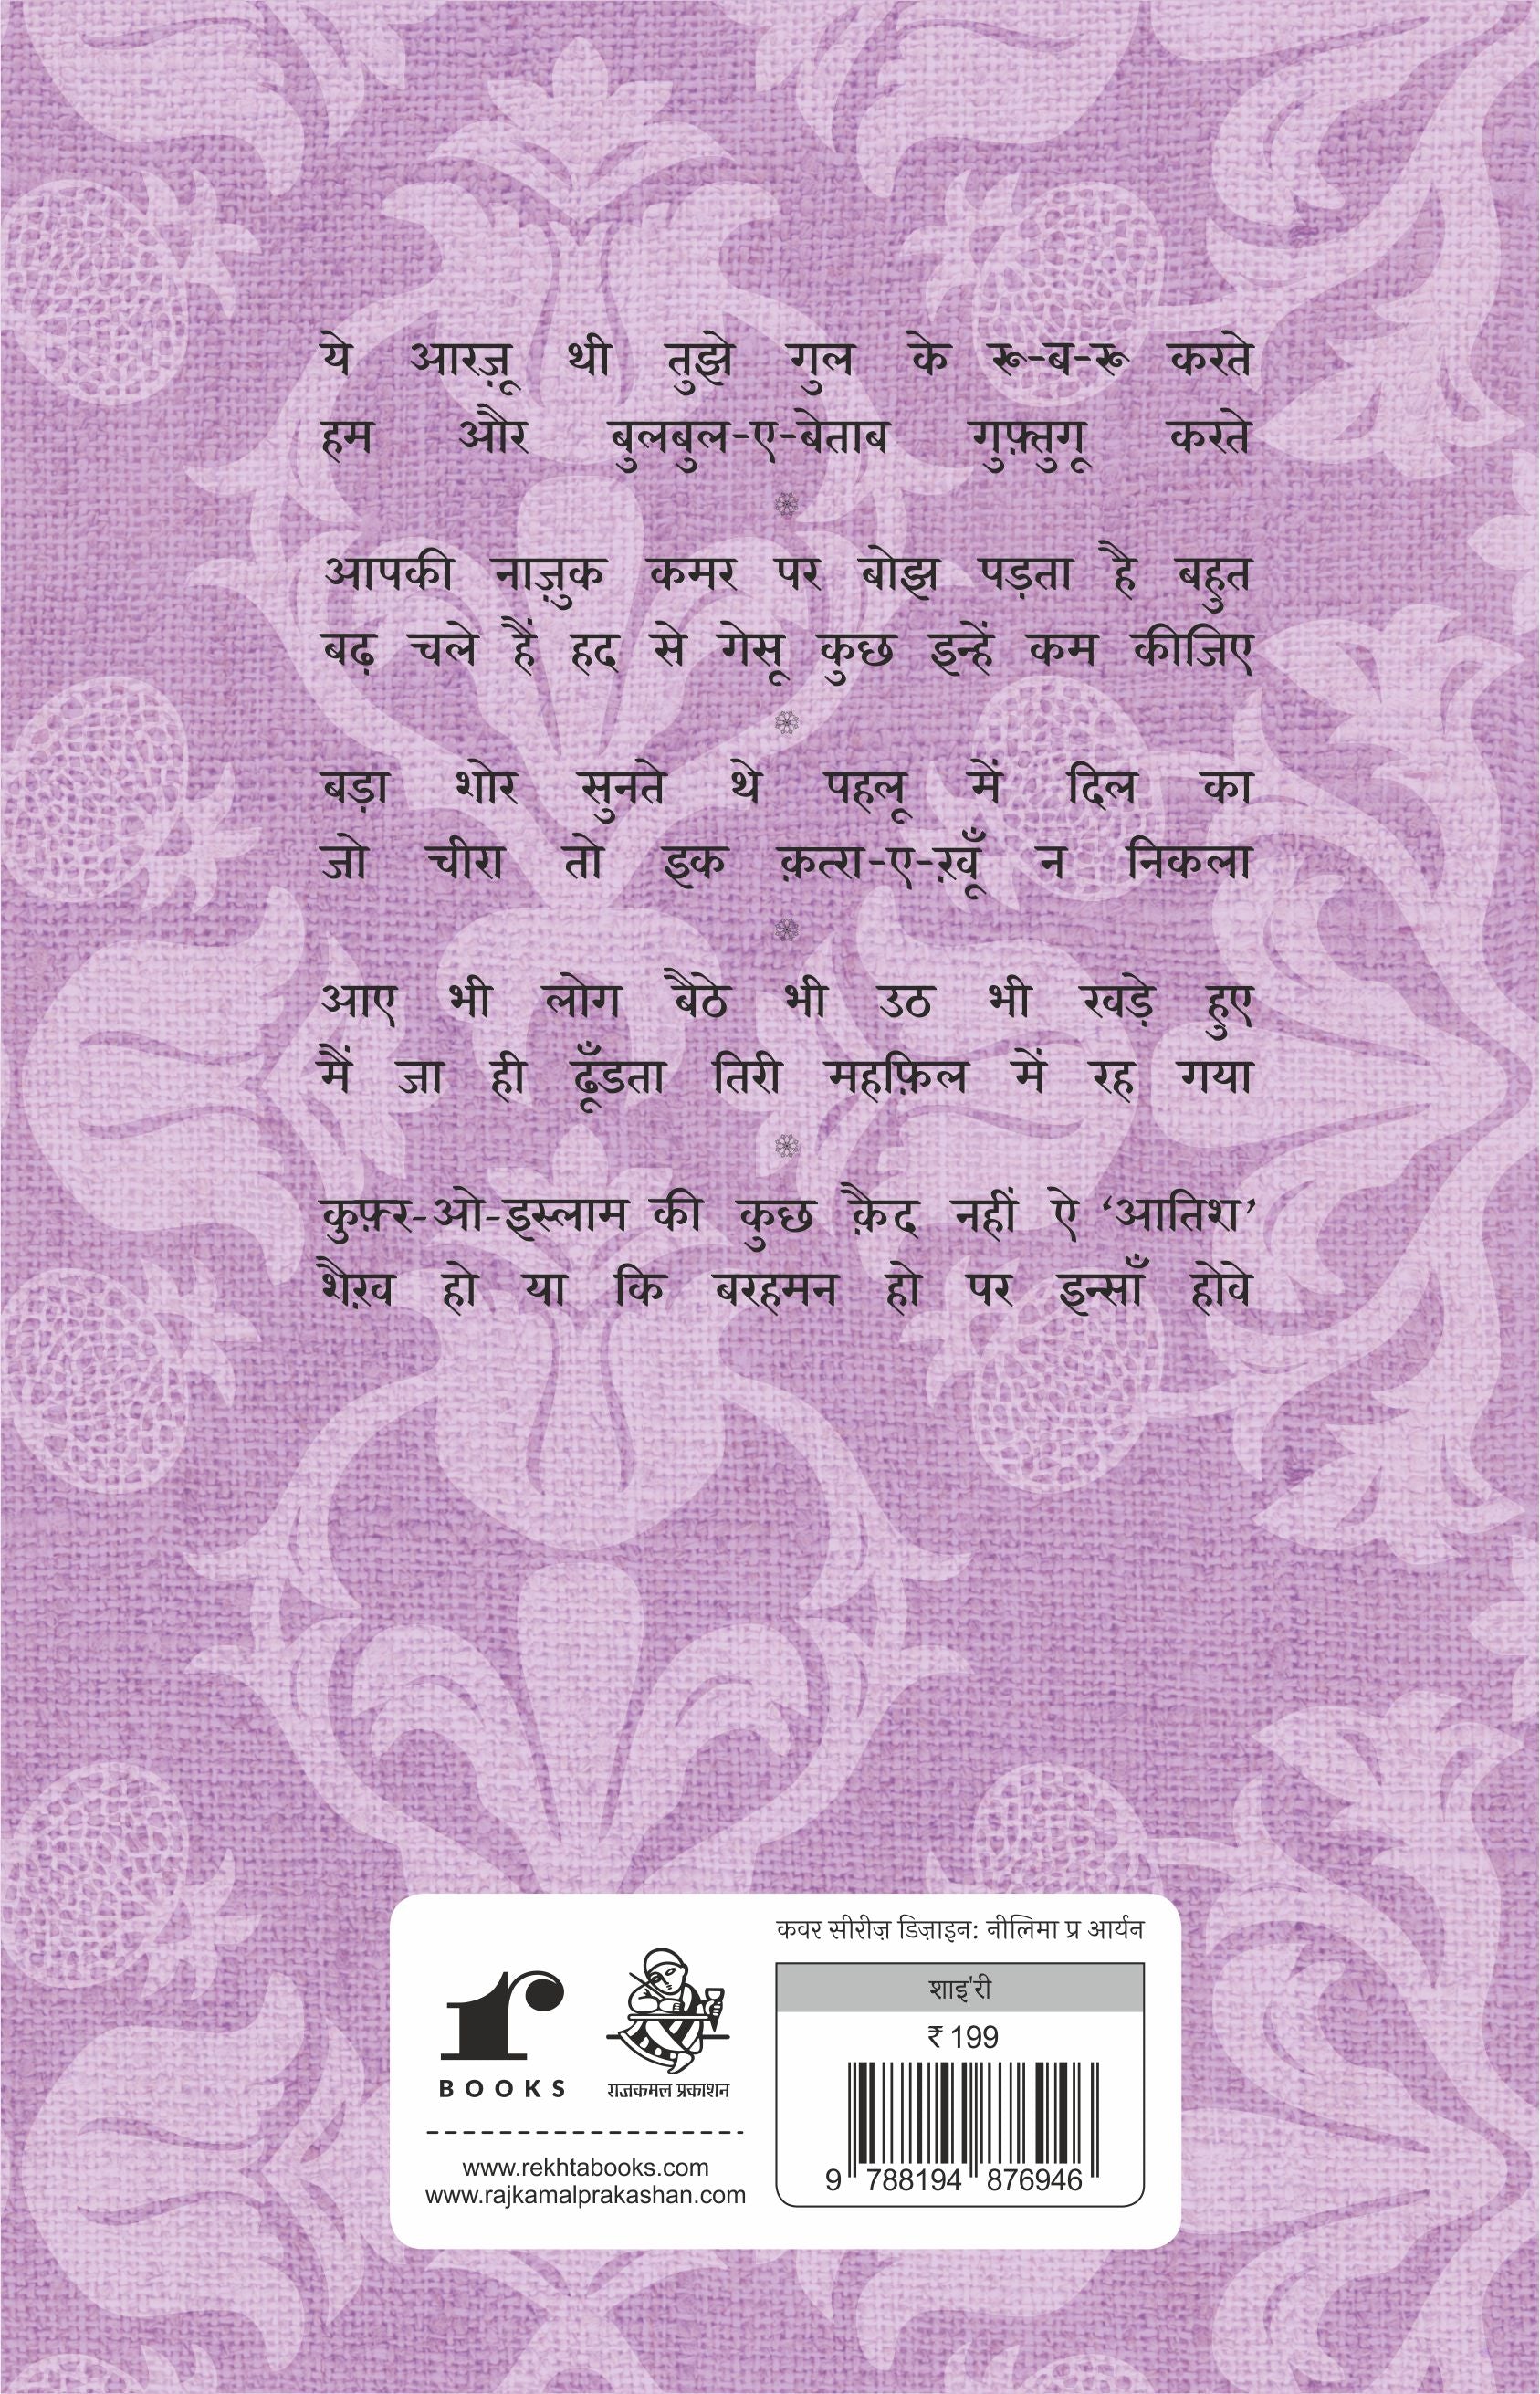 ये आरज़ू थी तुझे गुल के रू-ब-रू करते
हम और बुलबुल-ए-बेताब गुफ़्तुगू करते
आपकी नाज़ुक कमर पर बोझ पड़ता है बहुत
बढ़ चले हैं हद से गेसू कुछ इन्हें कम कीजिए
बड़ा शोर सुनते थे पहलू में दिल का
जो चीरा तो इक क़त्रा-ए-ख़ूँ न निकला
आए भी लोग बैठे भी उठ भी खड़े हुए
मैं जा ही ढूँडता तिरी महफ़िल में रह गया
कुफ़्र-ओ-इस्लाम की कुछ क़ैद नहीं ऐ ‘आतिश’
शैख़ हो या कि बरहमन हो पर इन्साँ होवे
r
BOOKS
राजकमल प्रकाशन
www.rekhtabooks.com
www.rajkamalprakashan.com
कवर सीरीज़ डिज़ाइन: नीलिमा प्र आर्यन
शाइ'री
₹ 199
9 788194 876946